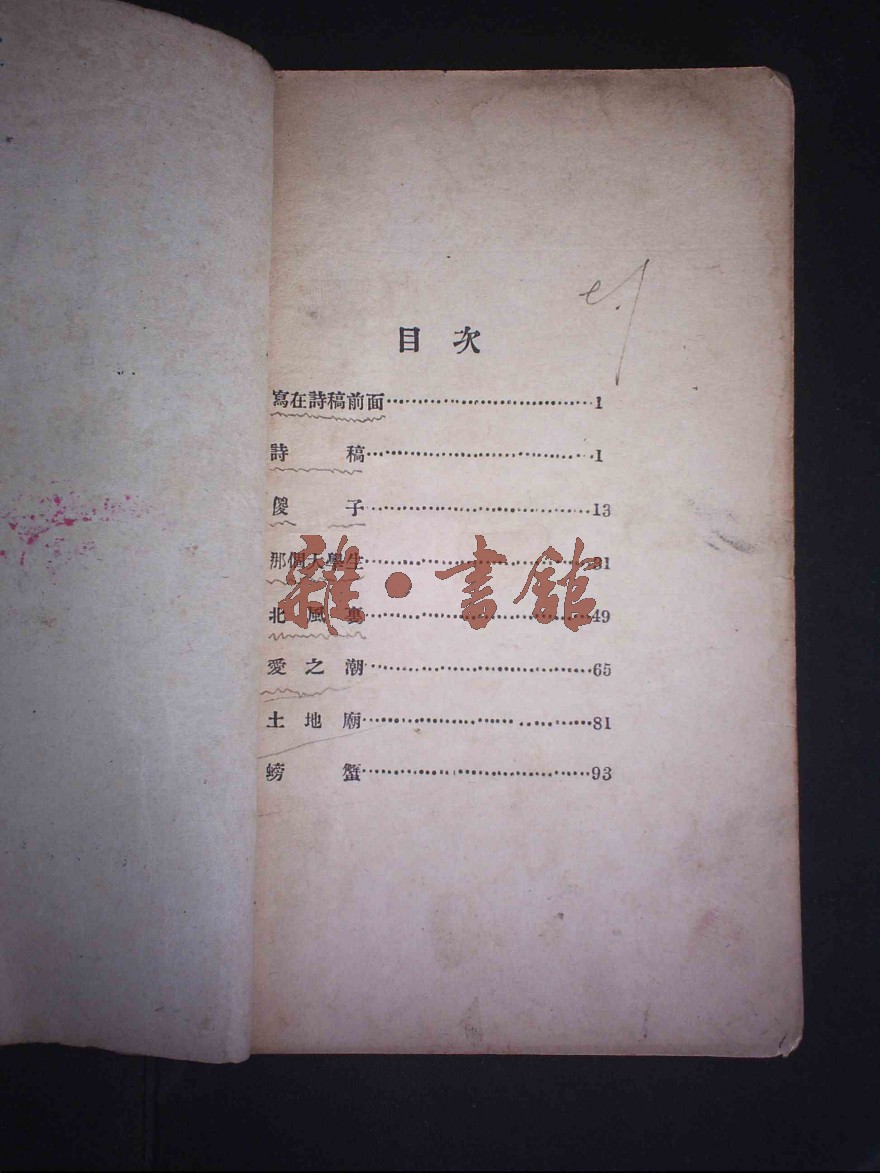 目次
寫在詩稿前面……………………………1
詩稿……………………………1
傻子……………………………13
那個大學生……………………………31
北風裏……………………………49
愛之潮……………………………65
土地廟……………………………81
螃蟹……………………………93
雜·書館